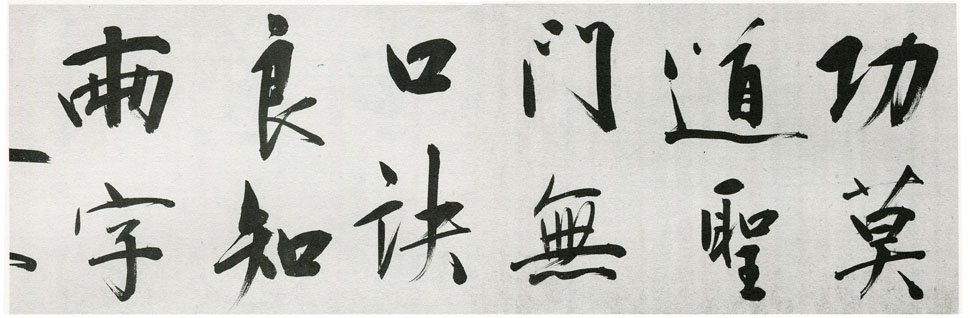 功莫
道聖
门無
口訣
良知
兩字